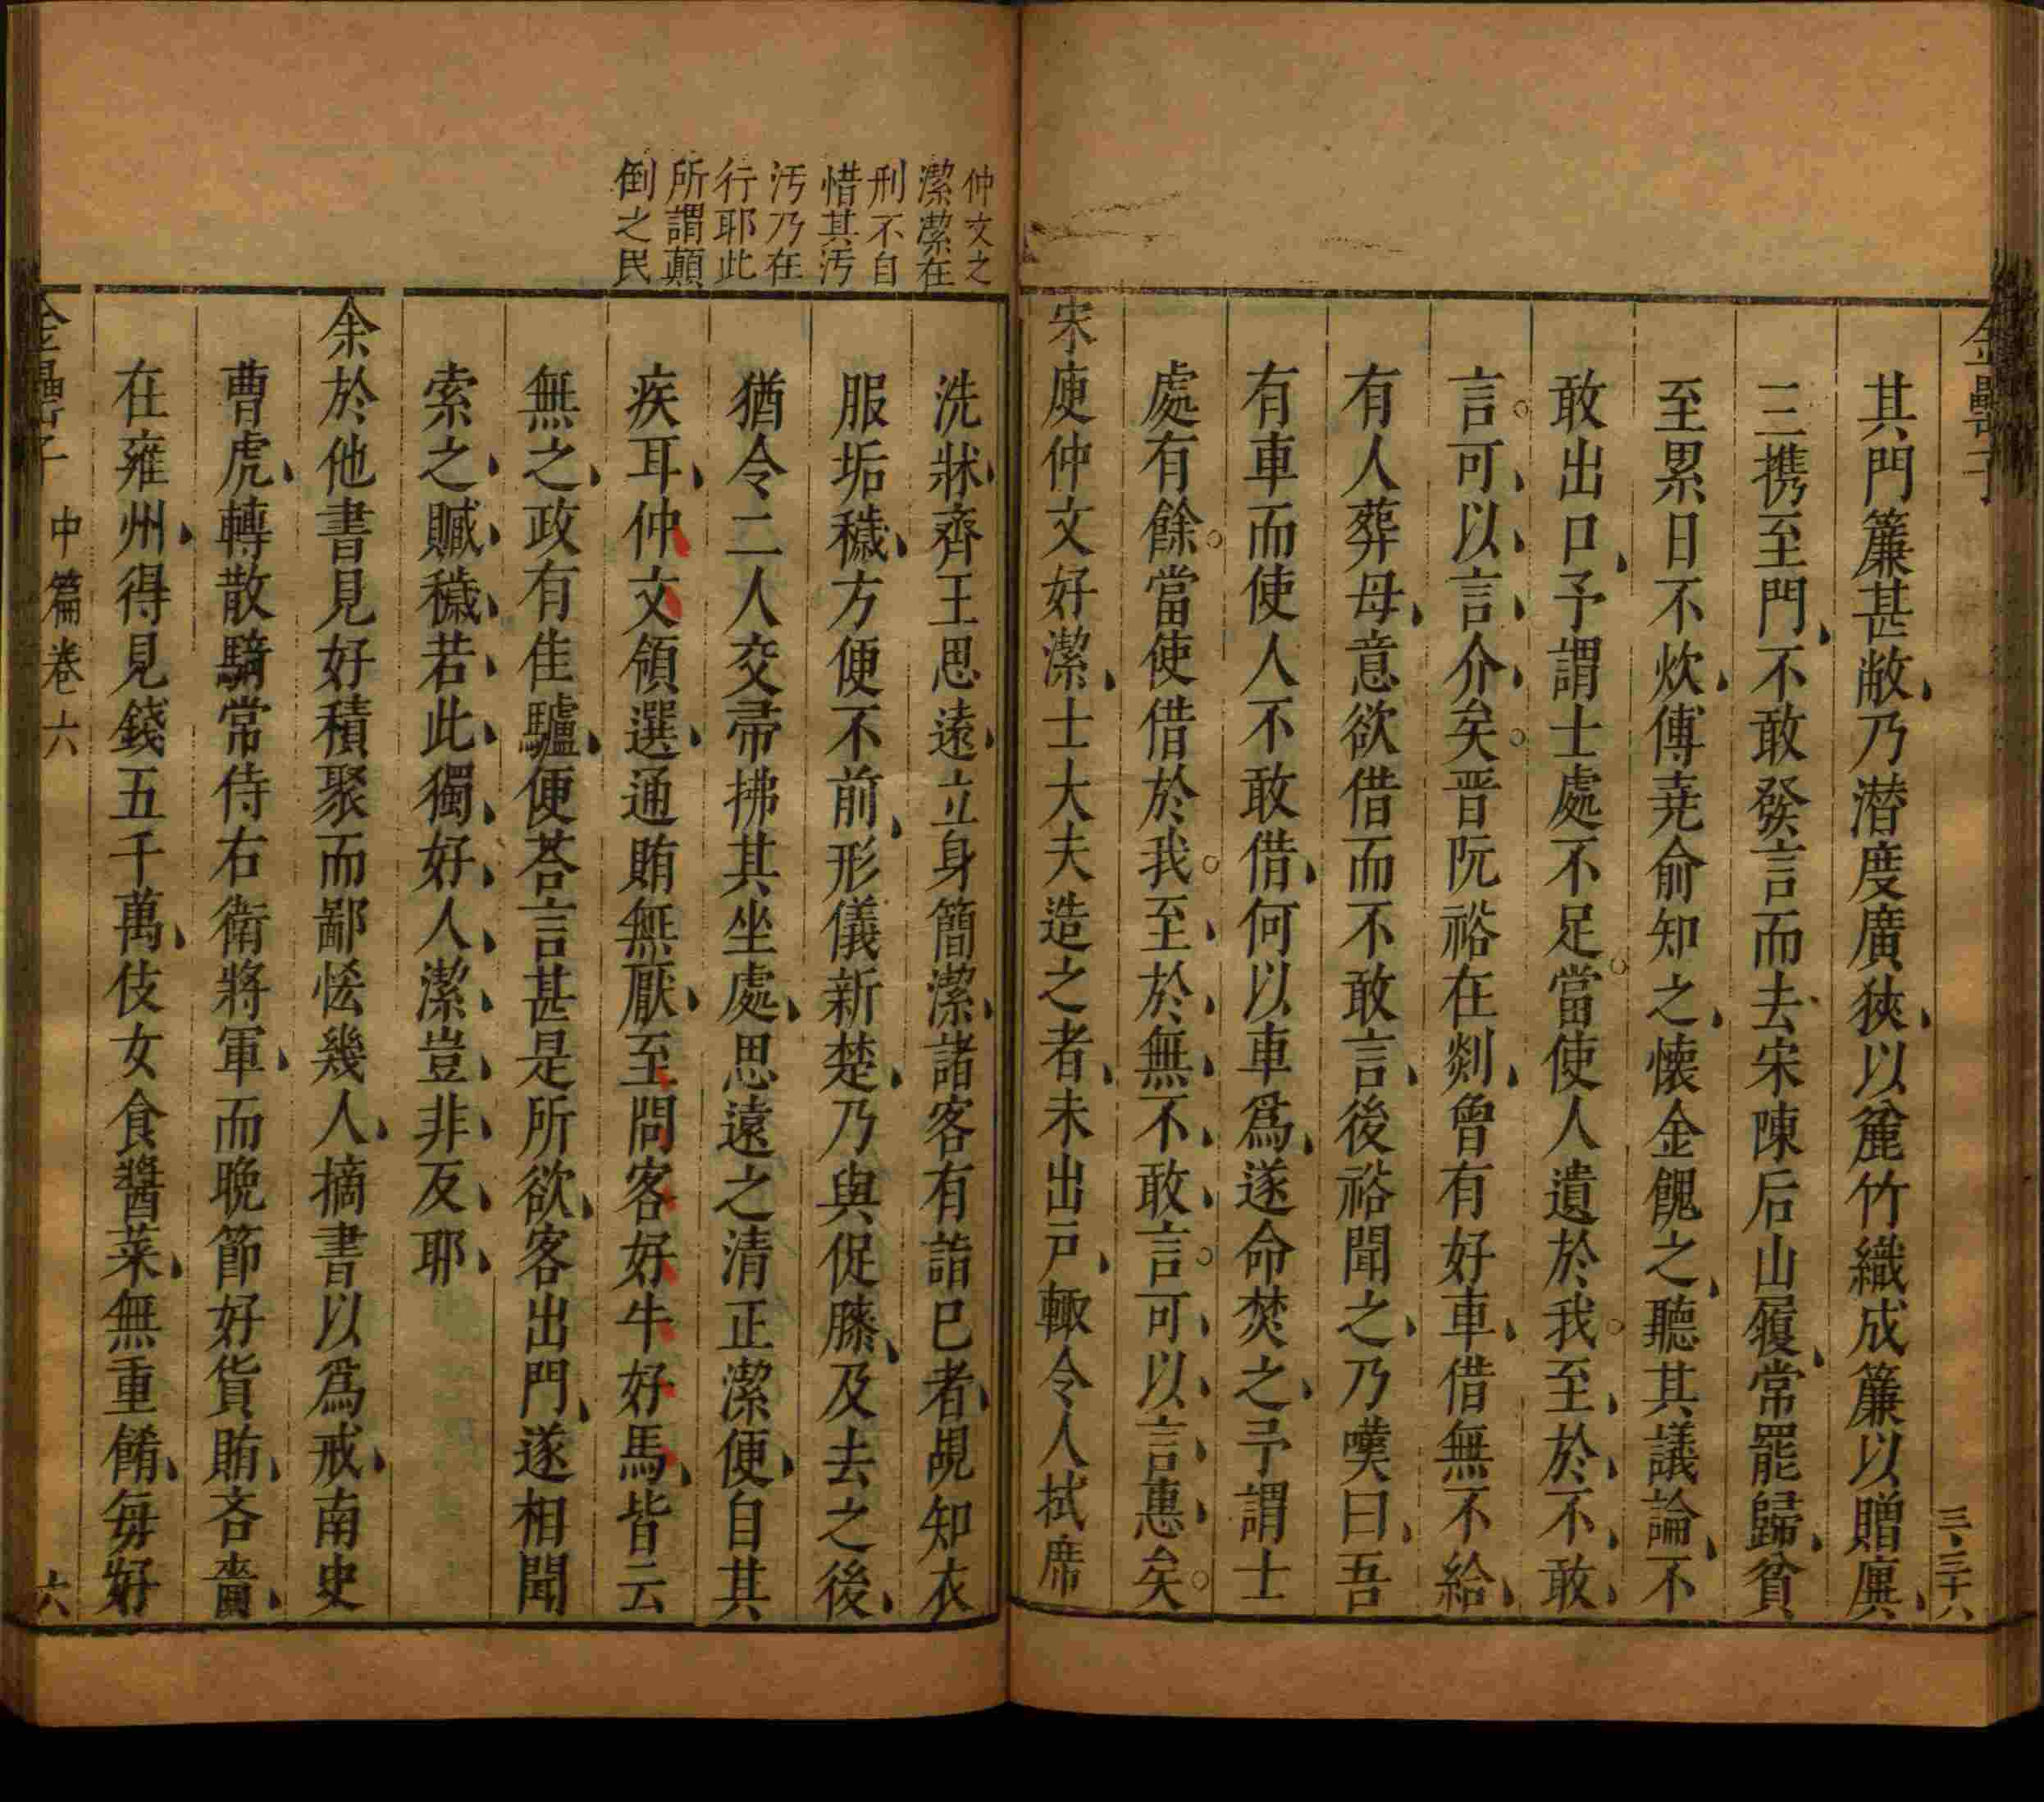 金罍子
三、三十八
其門簾甚敝乃潜度廣狹以麄竹織成簾以贈廙
三攜至門不敢發言而去宋陳后山履常罷歸貧
至累日不炊傅堯俞知之懷金餽之聽其議論不
敢出口予謂士處不足當使人遺於我至於不敢
言可以言介矣晋阮裕在剡曾有好車借無不給
有人葬母意欲借而不敢言後裕聞之乃嘆曰吾
有車而使人不敢借何以車爲遂命焚之予謂士
處有餘當使借於我至於無不敢言可以言惠矣
宋庾仲文好潔士大夫造之者未出戸輙令人拭席
仲文之
潔潔在
刑不自
惜其汚
汚乃在
行耶此
所謂顛
倒之民
洗牀齊王思遠立身簡潔諸客有詣巳者覘知衣
服垢穢方便不前形儀新楚乃與促膝及去之後
猶令二人交帚拂其坐處思遠之清正潔便自其
疾耳仲文領選通賄無厭至問客好牛好馬皆云
無之政有佳驢便荅言甚是所欲客出門遂相聞
索之贓穢若此獨好人潔豈非反耶
余於他書見好積聚而鄙恡幾人摘書以爲戒南史
曹虎轉散騎常侍右衛將軍而晩節好貨賄吝嗇
在雍州得見錢五千萬伎女食醬菜無重餚每好
金罍子 中篇卷六 六